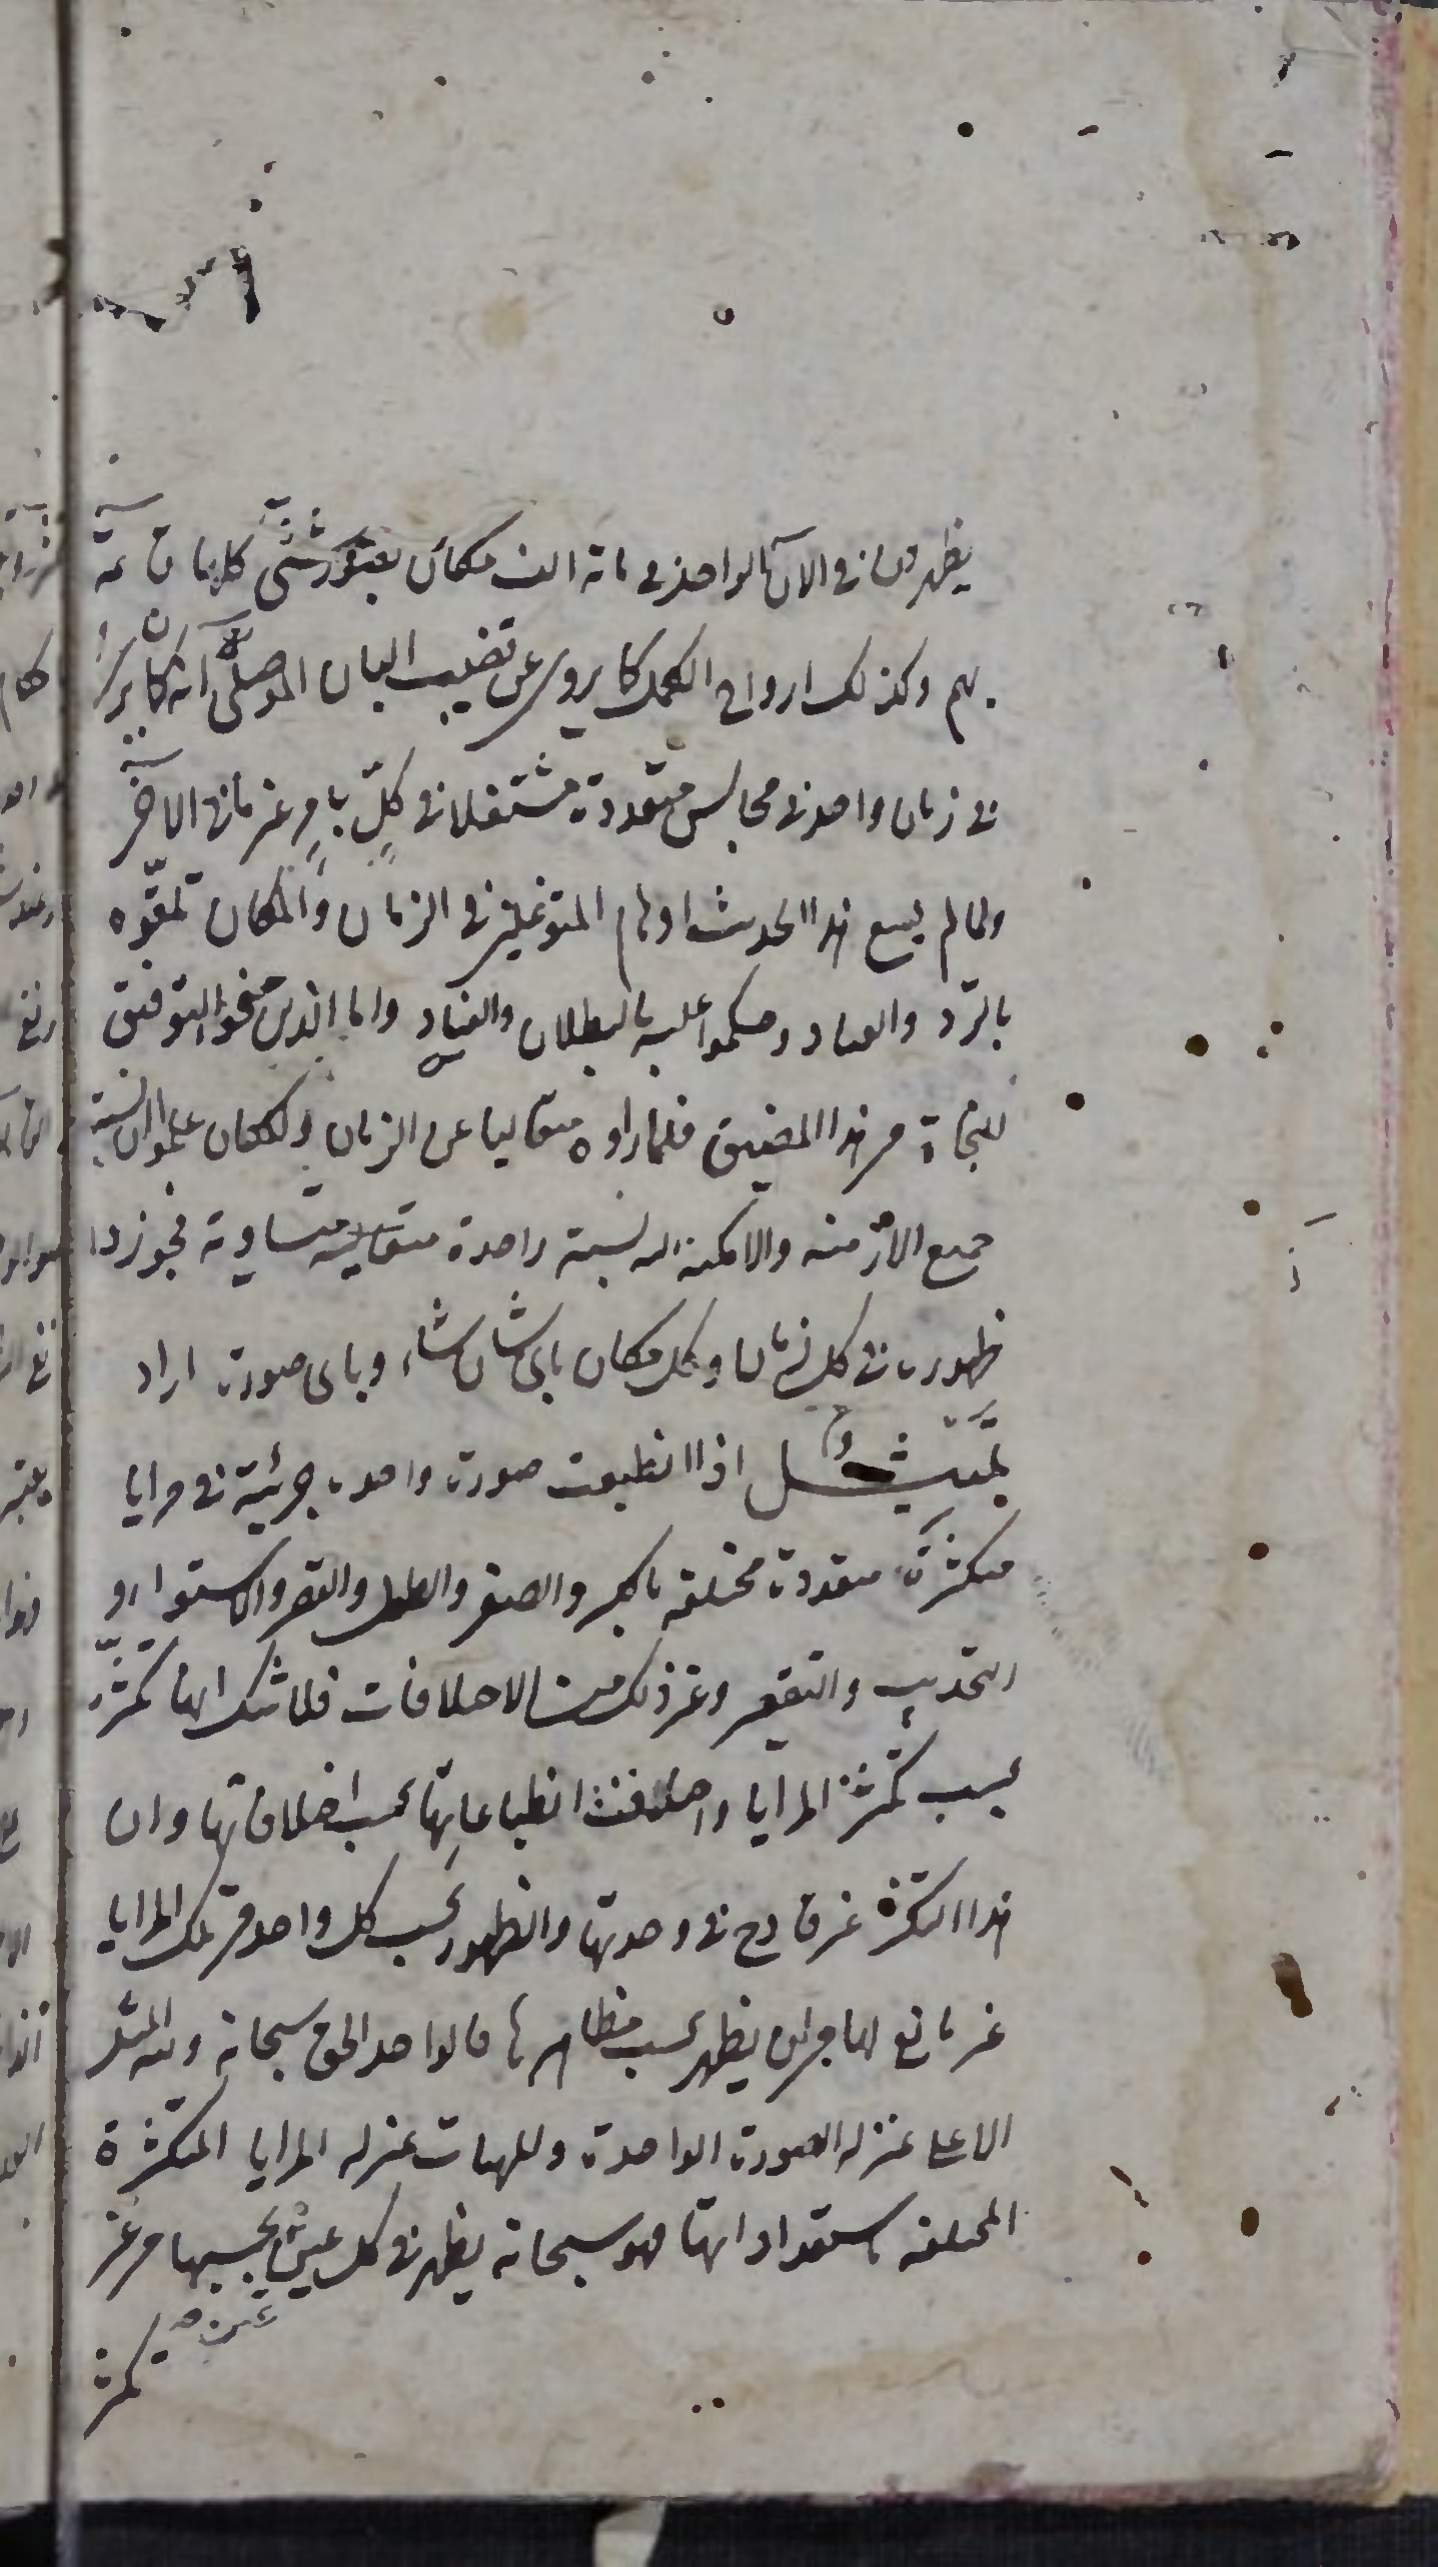 يظهرون في الآن الواحد في مائة الف مكان بصور شتى كلها قائمة
بهم وكذلك ارواح الكمل كما يروى عن قضيب البان الموصلي انه كان يرى
في زمان واحد في مجالس متعددة مشتغلا في كلٍّ بامرٍ غير ما في الآخر
ولما لم يسع هذا الحديث اوهام المتوغلين في الزمان والمكان تلقّوه
بالرّد والعناد وحكموا عليه بالبطلان والفساد واما الذين منحوا التوفيق
للنجاة من هذا المضيق فلما راوه متعاليا عن الزمان والمكان علموا ان نسبة
جميع الأزمنه والامكنة اليه نسبة واحدة متساوية فجوزوا
ظهوره في كل زمان وكل مكان باى شان شاء وباى صورة اراد
تمثيل اذا انطبعت صورة واحدة جزئية في مرايا
متكثرة متعددة مختلفة بالكبر والصغر والطول والقصر والاستواء و
التحديب والتقعير وغير ذلك من الاختلافات فلا شك انها تكثرت
بحسب تكثر المرايا واختلفت انطباعاتها بحسب اختلافاتها وان
هذا التكثر غير قادح في وحدتها والظهور بحسب كل واحد من تلك المرايا
غير مانع لها من ان يظهر بحسب مظاهرها فالواحد الحق سبحانه ولله المثل
الاعلى بمنزلة الصورة الواحدة والماهيات بمنزلة المرايا المتكثرة
المختلفة باستعداداتها فهو سبحانه يظهر في كل عين بحسبها من غير
تكثر